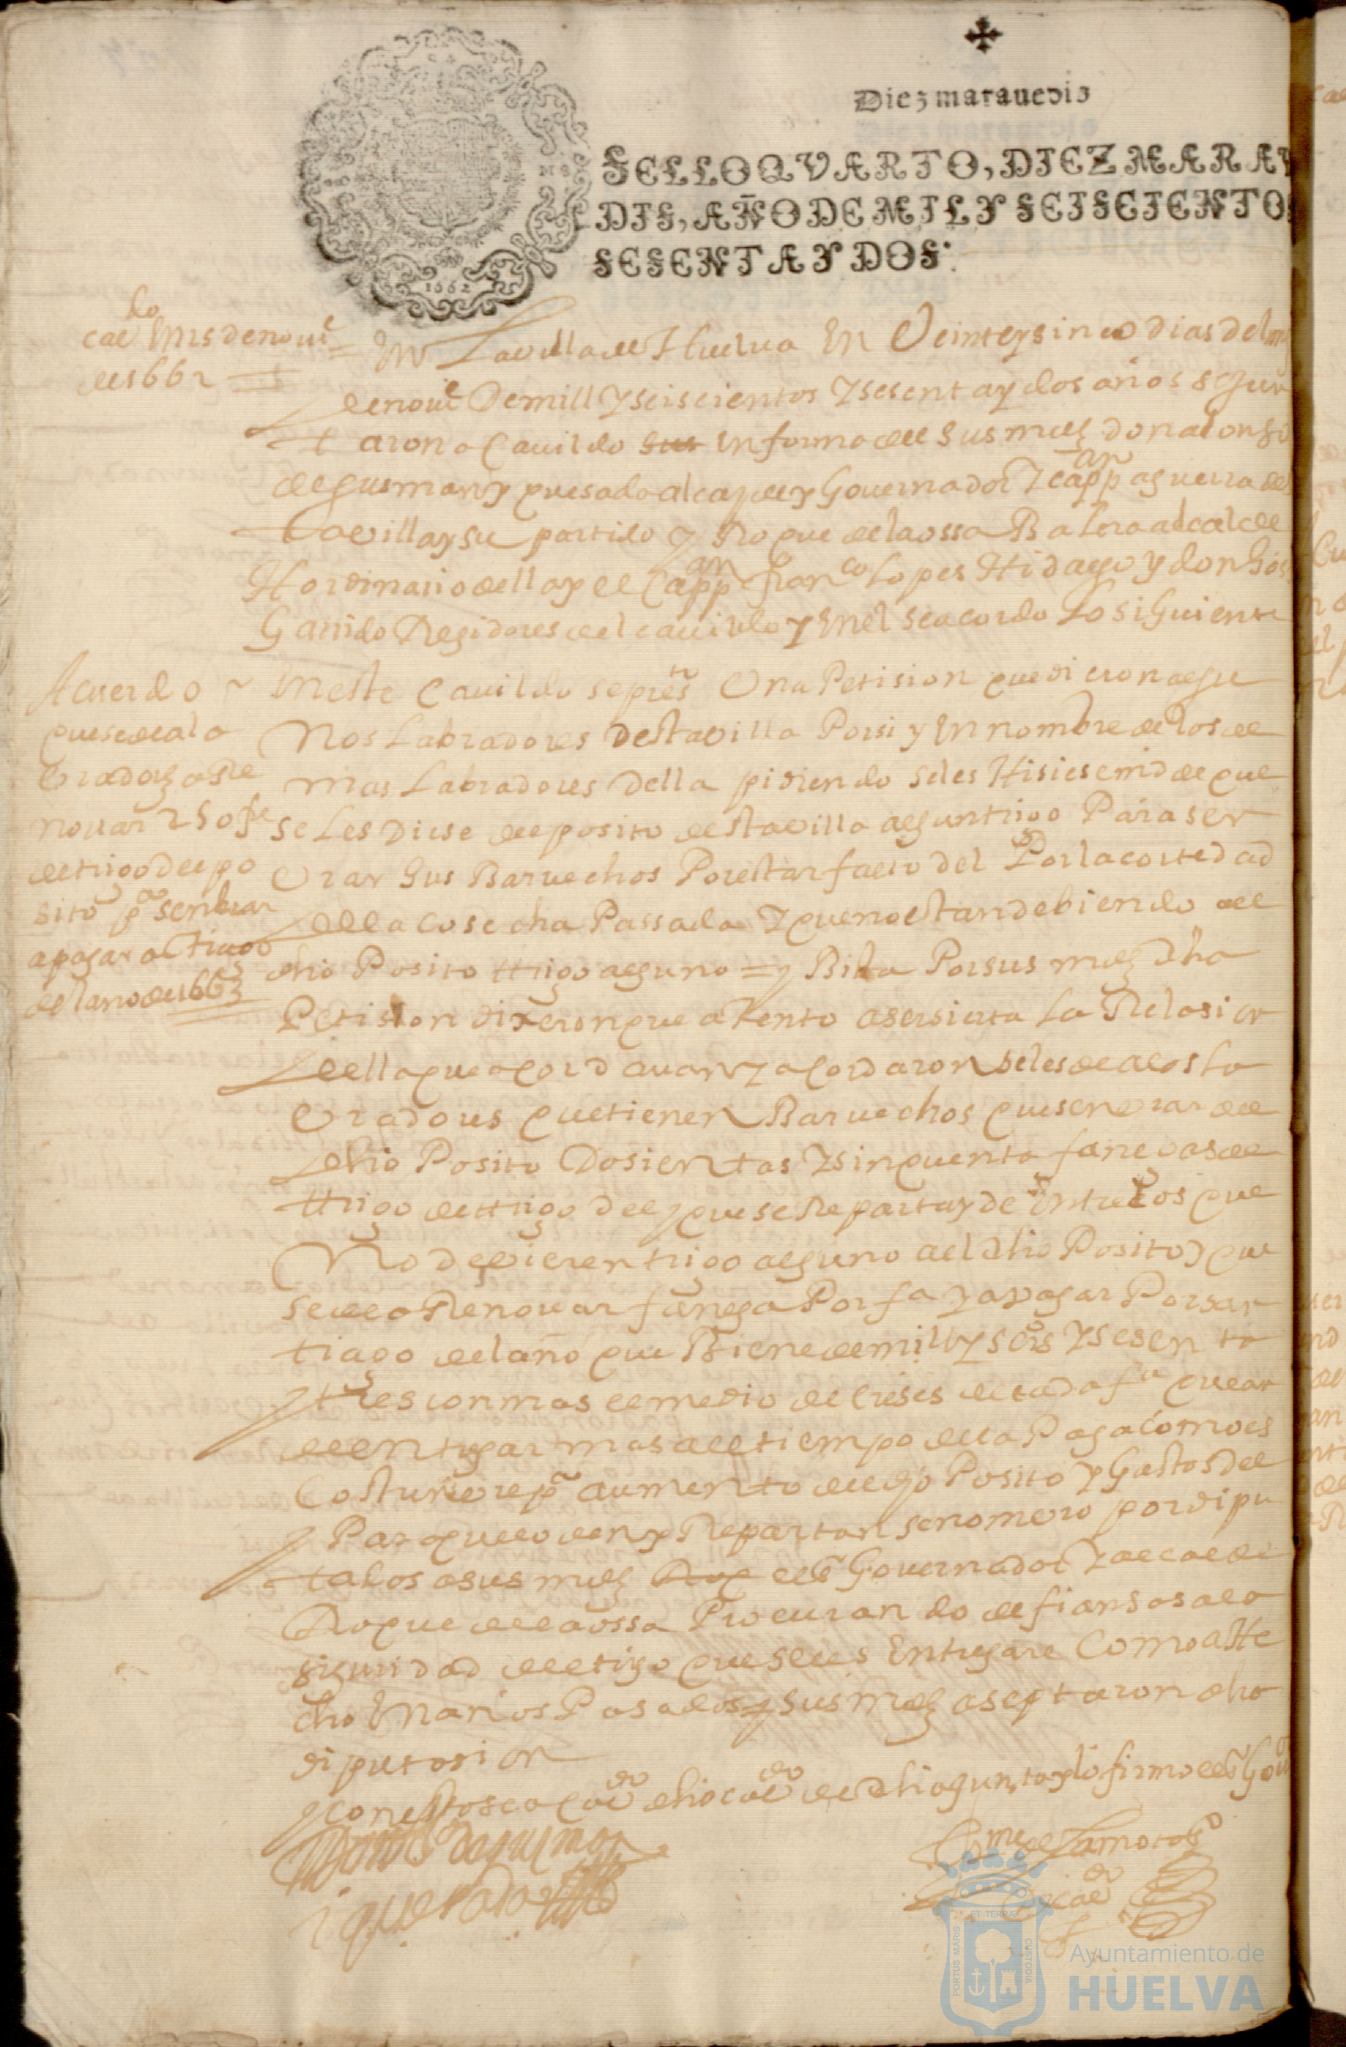 Diez marauedis
SELLO QVARTO, DIEZ MARAV
DIS, AÑO DE MIL Y SEISCIENTOS
SESENTA Y DOS.
1662
caudo en 25 de nouie
de 1662
En La villa de Huelua En Veinte y sinco dias del mes
de noue De mill y seiscientos y sesenta y dos años se jun
taron a Cauildo sus En forma de sus mds don alonso
de gusman y quesada alcayde y Gouernador y cappan a guerra de
la villa y su partido y Roque de la ossa Balera alcalde
Hordinario della y el Cappan franco Lopes Hidalgo y don
Garrido Regidores de el cauildo y En el se acordo Lo siguiente
Acuerdo
que se de a la
bradores a Re
nouar 250 fs
de trigo del po
sito pa senbrar
a pagar a Stiago
del año de 1663
En este Cauildo se presto Vna Petision que dieron algu
Nos Labradores Desta villa Por si y En nombre de los de
mas Labradores Della pidiendo se les Hisiese md de que
se Les Diese del posito desta villa algun trigo Para sen
brar sus Baruechos Por estar faltos del Por la cortedad
de la cosecha Passada y que no estan debiendo al
dho Posito ttrigo alguno = y Bista Por sus mds Dha
Petision dixeron que atento a ser sierta La Relasion
della que acordauan y acordaron se les de a los la
bradores que tienen Baruechos que senbrar del
dho Posito Dosientas y sinquenta fanegas de
ttrigo de ttrigo del y que se Reparta y de Entre los que
No debieren trigo alguno al dho Posito y que
se de a Renouar fanega Por fa y a pagar Por san
tiago del año que Biene de mill y seis y sesenta
y tres con mas el medio de creses de cada fa que an
de entregar mas al tiempo de la Paga como es
Costunbre pa aumento de dho Posito y Gastos del
y Para que lo den y Repartan se nomero por dipu
tados a sus mds Roq el sr Gouernador y alcalde
Roque de la ossa Procurando de fiansas a la
siguridad del trigo que se les Entregare Como aste
cho En años Pasados y sus mds aseptaron dho
diputasion
y con esto se acauo dho cauildo de dho aguntto y lo firmo el sr Gour
Don Alº de gusman
i quesada
me de Lamota